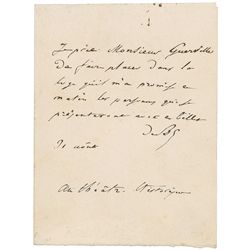 Je prie Monsieur Guerville
de faire placer dans la
loge qu'il m'a promise ce
matin les personnes qui se
présenteront avec ce billet
31 août
au théâtre historique